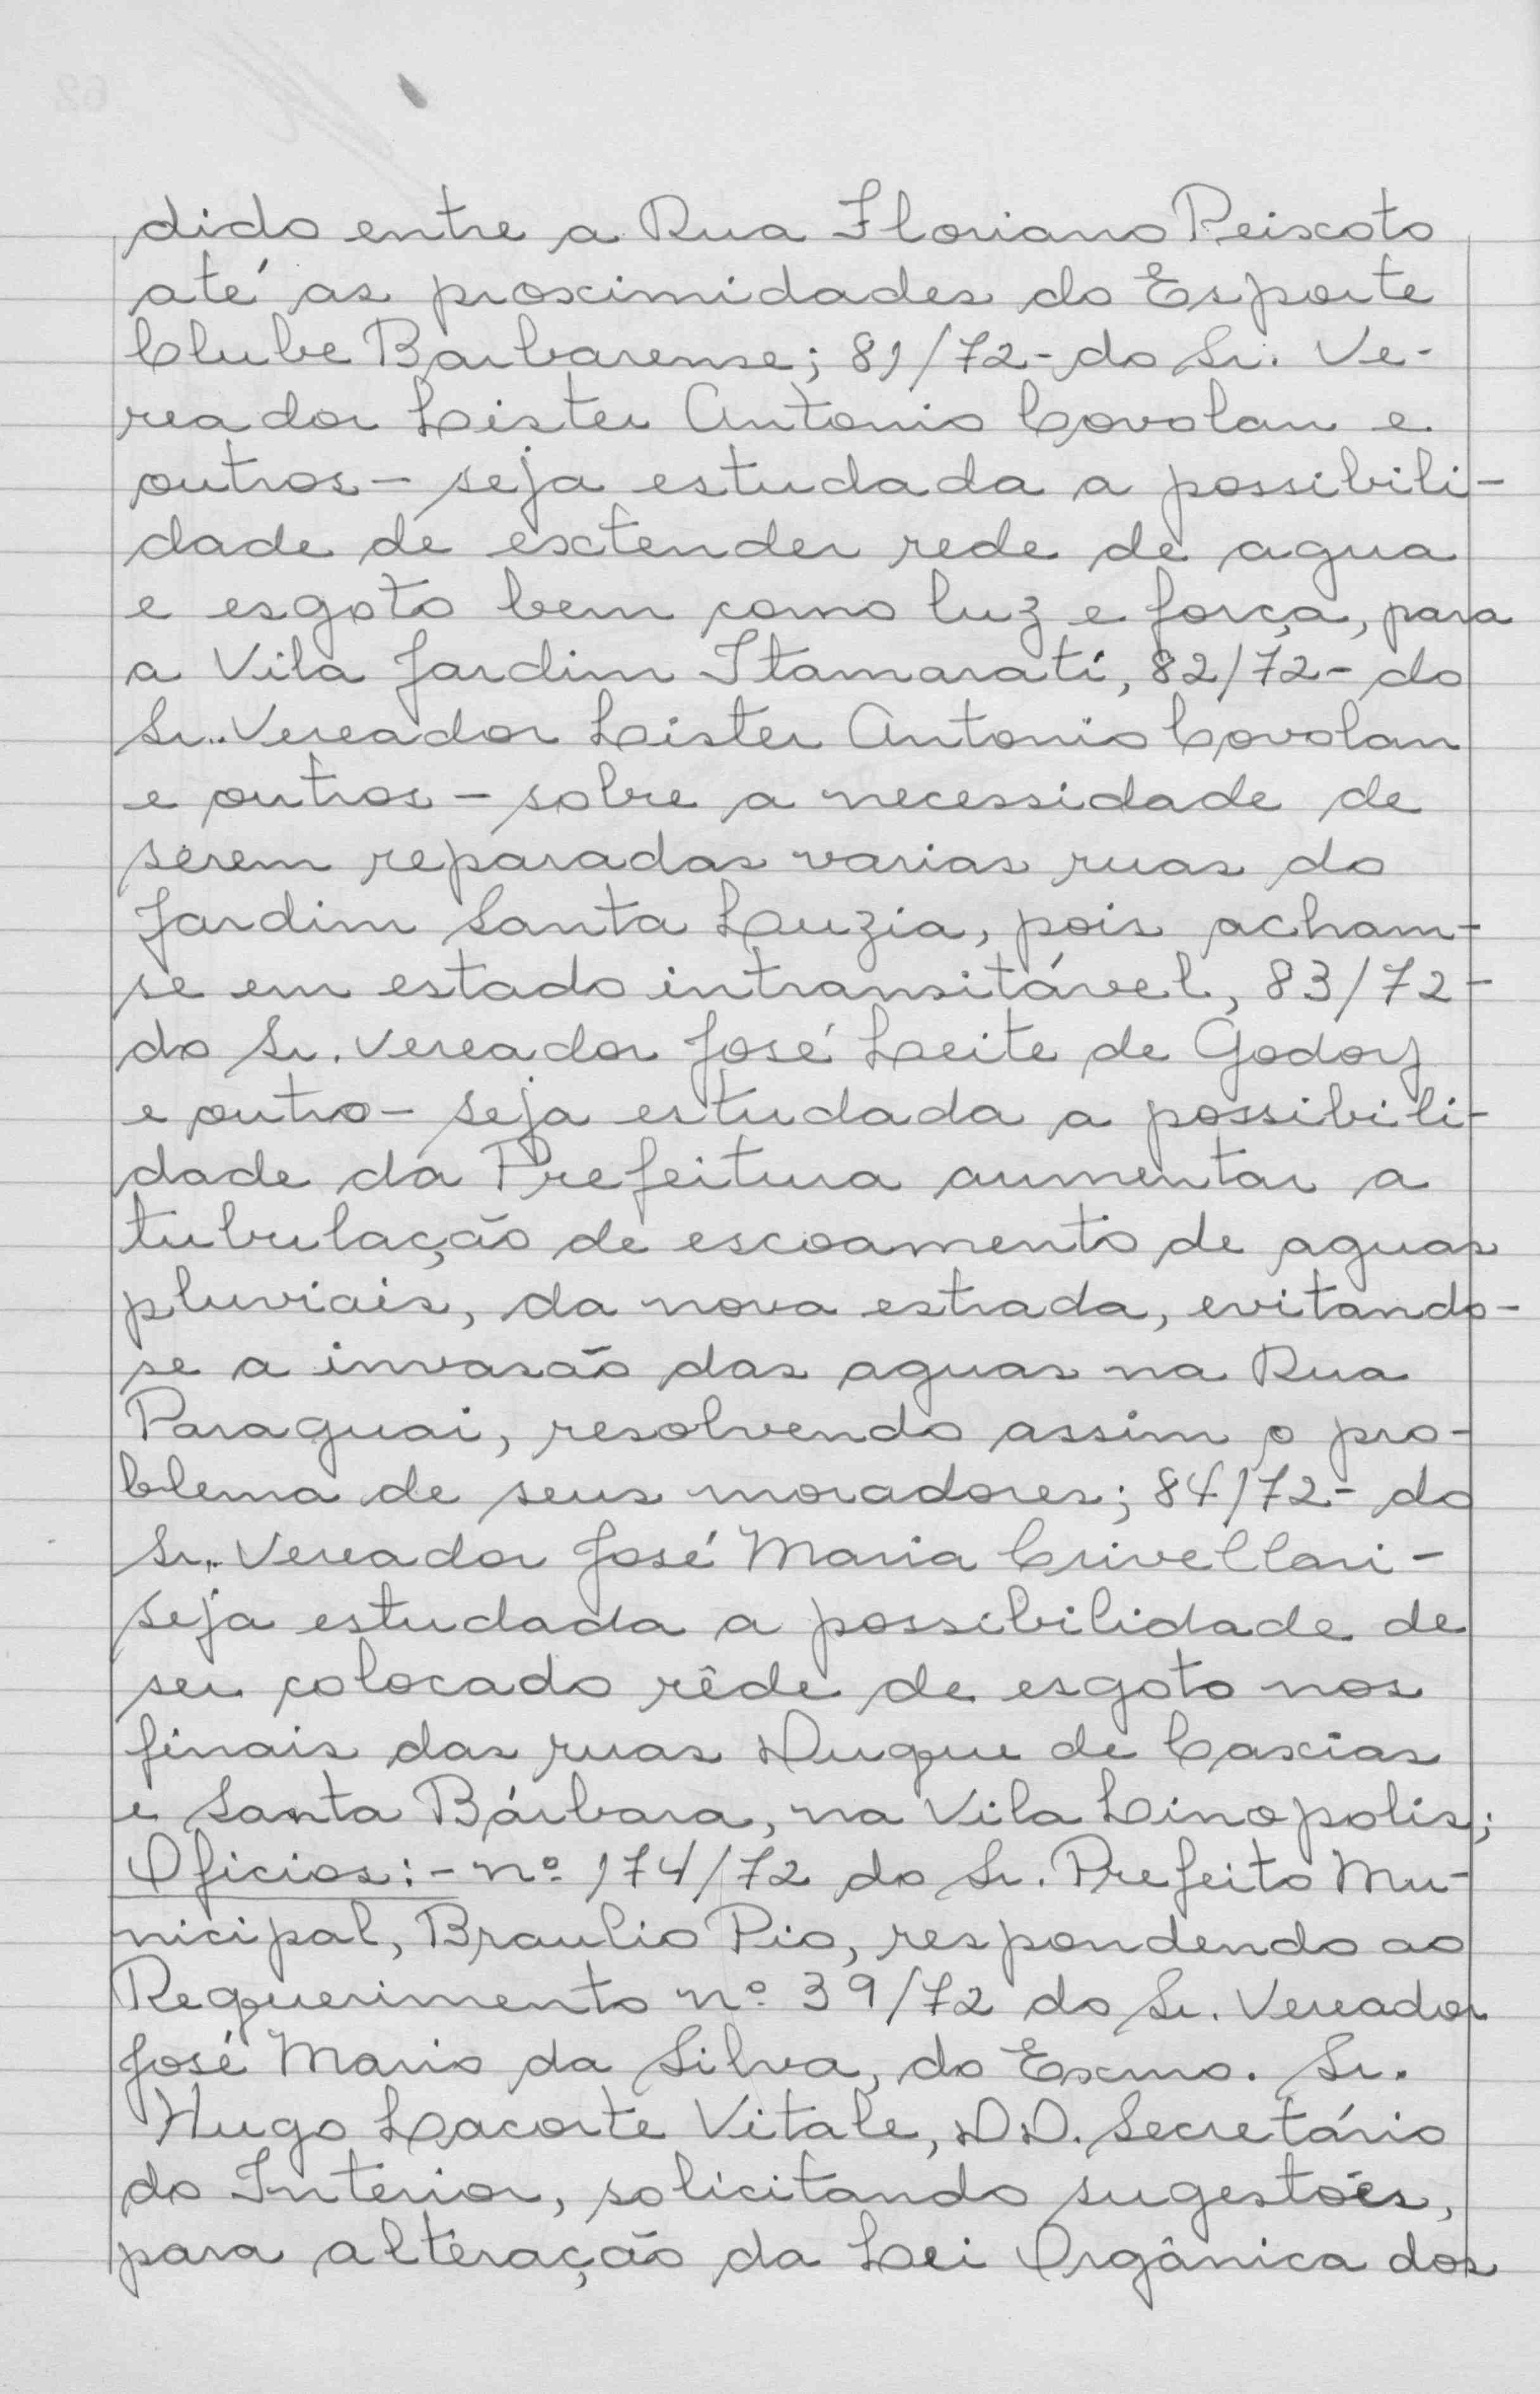 dido entre a Rua Floriano Peixoto
até as proximidades do Esporte
Clube Barbarense; 81/72- do Sr. Ve-
reador Lister Antonio Covolan e
outros - seja estudada a possibili-
dade de extender rede de agua
e esgoto bem como luz e força, para
a Vila Jardim Itamarati, 82/72- do
Sr. Vereador Lister Antonio Covolan
e outros - sobre a necessidade de
serem reparadas varias ruas do
Jardim Santa Luzia, pois acham-
se em estado intransitável, 83/72-
do Sr. Vereador José Leite de Godoy
e outro - seja estudada a possibili-
dade da Prefeitura aumentar a
tubulação de escoamento de aguas
pluviais, da nova estrada, evitando-
se a invasão das aguas na Rua
Paraguai, resolvendo assim o pro-
blema de seus moradores; 84/72- do
Sr. Vereador José Maria Crivellari -
seja estudada a possibilidade de
ser colocado rêde de esgoto nos
finais das ruas Duque de Caxias
e Santa Bárbara, na Vila Linopolis;
Oficios:- nº 174/72 do Sr. Prefeito Mu-
nicipal, Braulio Pio, respondendo ao
Requerimento nº 39/72 do Sr. Vereador
José Mario da Silva, do Exmo. Sr.
Hugo Lacorte Vitale, DD. Secretário
do Interior, solicitando sugestões,
para alteração da Lei Orgânica dos